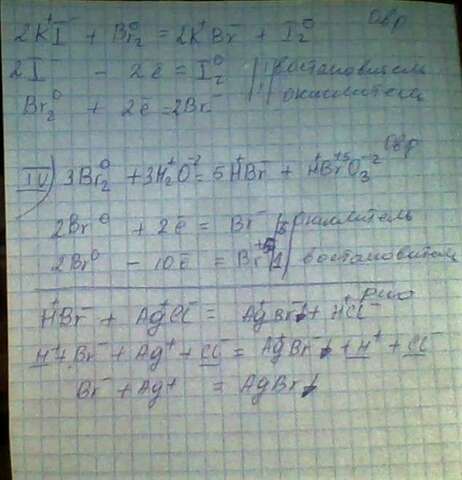 ОВР
2K⁺I⁻ + Br₂⁰ = 2K⁺Br⁻ + I₂⁰
2I⁻ - 2ē = I₂⁰ |1| востановитель
Br₂⁰ + 2ē = 2Br⁻ |1| окислитель
ОВР
IV) 3Br₂⁰ + 3H₂⁺O⁻² = 5H⁺Br⁻ + H⁺Br⁺⁵O₃⁻²
2Br⁰ + 2ē = Br⁻ |5| окислитель
2Br⁰ - 10ē = Br⁺⁵ |1| востановитель
РИО
H⁺Br⁻ + Ag⁺Cl⁻ = Ag⁺Br⁻↓ + H⁺Cl⁻
H⁺ + Br⁻ + Ag⁺ + Cl⁻ = AgBr↓ + H⁺ + Cl⁻
Br⁻ + Ag⁺ = AgBr↓